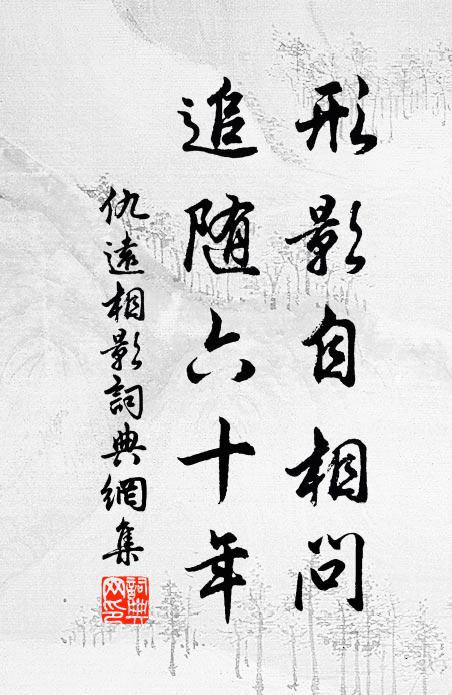 形影自相问
追随六十年
仇遠相影詞典網集
詞典网印